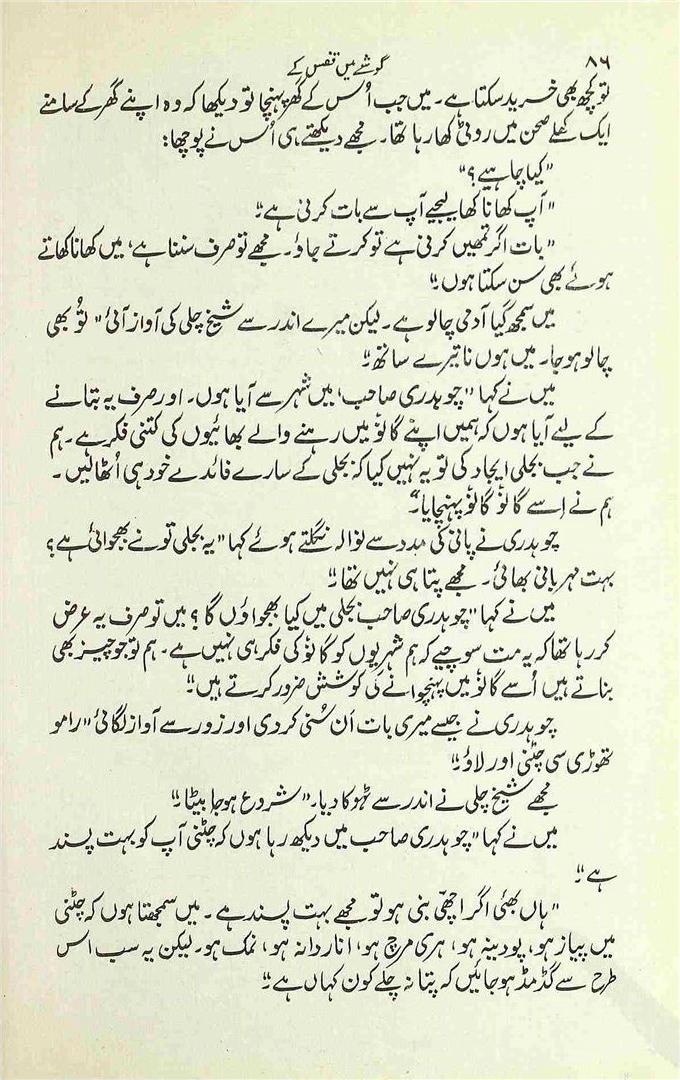 ۸۶
گوشے میں قفس کے
تو کچھ بھی خرید سکتا ہے۔ میں جب اُس کے گھر پہنچا تو دیکھا کہ وہ اپنے گھر کے سامنے
ایک کھلے صحن میں روٹی کھا رہا تھا۔ مجھے دیکھتے ہی اُس نے پوچھا:
"کیا چاہیے؟"
"آپ کھانا کھا لیجیے آپ سے بات کرنی ہے۔"
"بات اگر تمھیں کرنی ہے تو کرتے جاؤ۔ مجھے تو صرف سننا ہے، میں کھانا کھاتے
ہوئے بھی سن سکتا ہوں۔"
میں سمجھ گیا آدمی چالو ہے۔ لیکن میرے اندر سے شیخ چلی کی آواز آئی "تُو بھی
چالو ہو جا۔ میں ہوں نا تیرے ساتھ۔"
میں نے کہا "چوہدری صاحب، میں شہر سے آیا ہوں۔ اور صرف یہ بتانے
کے لیے آیا ہوں کہ ہمیں اپنے گانوٗ میں رہنے والے بھائیوں کی کتنی فکر ہے۔ ہم
نے جب بجلی ایجاد کی تو یہ نہیں کیا کہ بجلی کے سارے فائدے خود ہی اُٹھائیں۔
ہم نے اِسے گانوٗ گانوٗ پہنچایا۔"
چوہدری نے پانی کی مدد سے نوالہ نگلتے ہوئے کہا "یہ بجلی تو نے بھجوائی ہے؟
بہت مہربانی بھائی۔ مجھے پتا ہی نہیں تھا۔"
میں نے کہا "چوہدری صاحب بجلی میں کیا بھجواؤں گا؟ میں تو صرف یہ عرض
کر رہا تھا کہ یہ مت سوچیے کہ ہم شہریوں کو گانوٗ کی فکر ہی نہیں ہے۔ ہم تو جو چیز بھی
بناتے ہیں اُسے گانوٗ میں پہنچوانے کی کوشش ضرور کرتے ہیں۔"
چوہدری نے جیسے میری بات اَن سُنی کر دی اور زور سے آواز لگائی "رامو
تھوڑی سی چٹنی اور لاؤ۔"
مجھے شیخ چلی نے اندر سے ٹہوکا دیا۔ "شروع ہو جا بیٹا۔"
میں نے کہا "چوہدری صاحب میں دیکھ رہا ہوں کہ چٹنی آپ کو بہت پسند
ہے۔"
"ہاں بھئی اگر اچھّی بنی ہو تو مجھے بہت پسند ہے۔ میں سمجھتا ہوں کہ چٹنی
میں پیاز ہو، پودینہ ہو، ہری مرچ ہو، انار دانہ ہو، نمک ہو۔ لیکن یہ سب اس
طرح سے گڈمڈ ہو جائیں کہ پتا نہ چلے کون کہاں ہے۔"